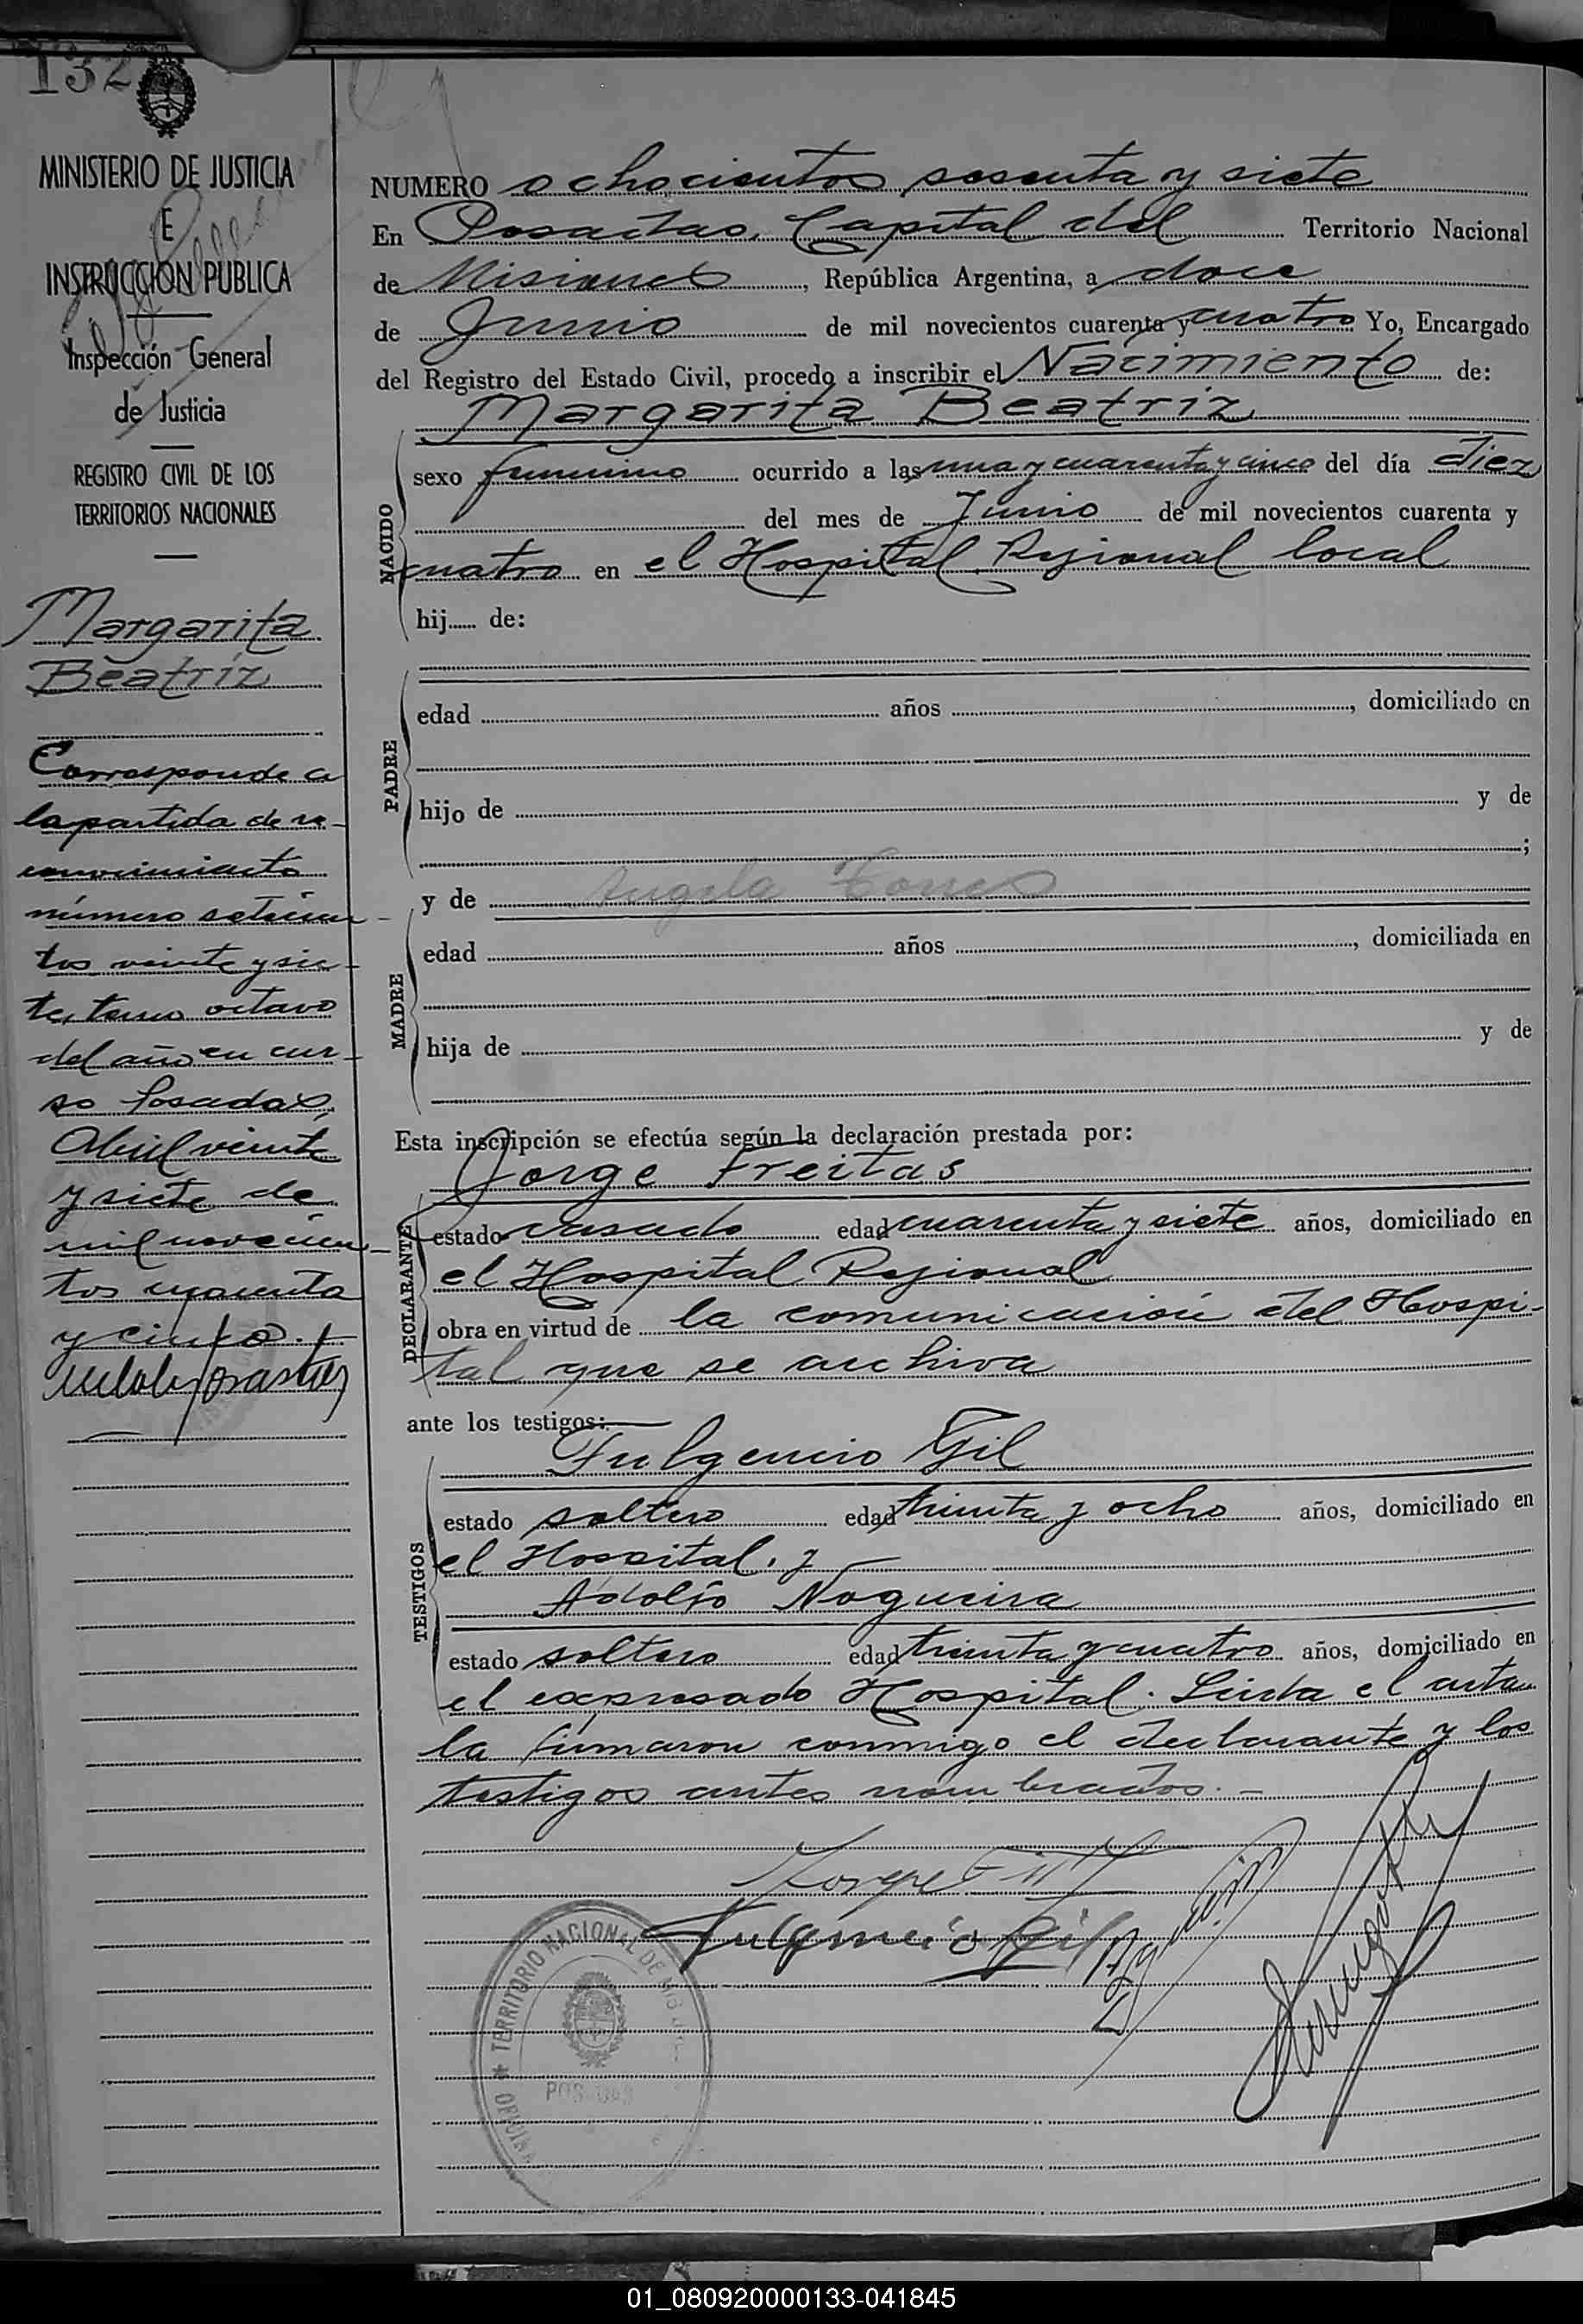 132
MINISTERIO DE JUSTICIA
E
INSTRUCCION PUBLICA
Inspección General
de Justicia
REGISTRO CIVIL DE LOS
TERRITORIOS NACIONALES
Margarita
Beatríz
Corresponde a
la partida de re-
conocimiento
número setecien-
tos veinte y sie-
te, tomo octavo
del año en cur-
so Posadas,
Abril veinte
y siete de
mil novecien-
tos cuarenta
y cinco.
NUMERO ochocientos sesenta y siete
En Posadas, Capital del Territorio Nacional
de Misiones, República Argentina, a doce
de Junio de mil novecientos cuarenta y cuatro Yo, Encargado
del Registro del Estado Civil, procedo a inscribir el Nacimiento de:
Margarita Beatríz
NACIDO
sexo femenino ocurrido a las una y cuarenta y cinco del día diez
del mes de Junio de mil novecientos cuarenta y
cuatro en el Hospital Rejional local
hij...... de:
PADRE
edad años , domiciliado en
hijo de y de
;
y de Angela Torres
MADRE
edad años , domiciliada en
hija de y de
Esta inscripción se efectúa según la declaración prestada por:
Jorge Freitas
DECLARANTE
estado casado edad cuarenta y siete años, domiciliado en
el Hospital Rejional
obra en virtud de la comunicación del Hospi-
tal que se archiva
ante los testigos:
Fulgencio Gil
TESTIGOS
estado soltero edad treinta y ocho años, domiciliado en
el Hospital. y
Adolfo Nogueira
estado soltero edad treinta y cuatro años, domiciliado en
el expresado Hospital. Leida el acta
la firmaron conmigo el declarante y los
testigos antes nombrados. -
Jorge
Fulgencio Gil
TERRITORIO NACIONAL DE MISIONES
POSADAS
OFICINA
01_080920000133-041845